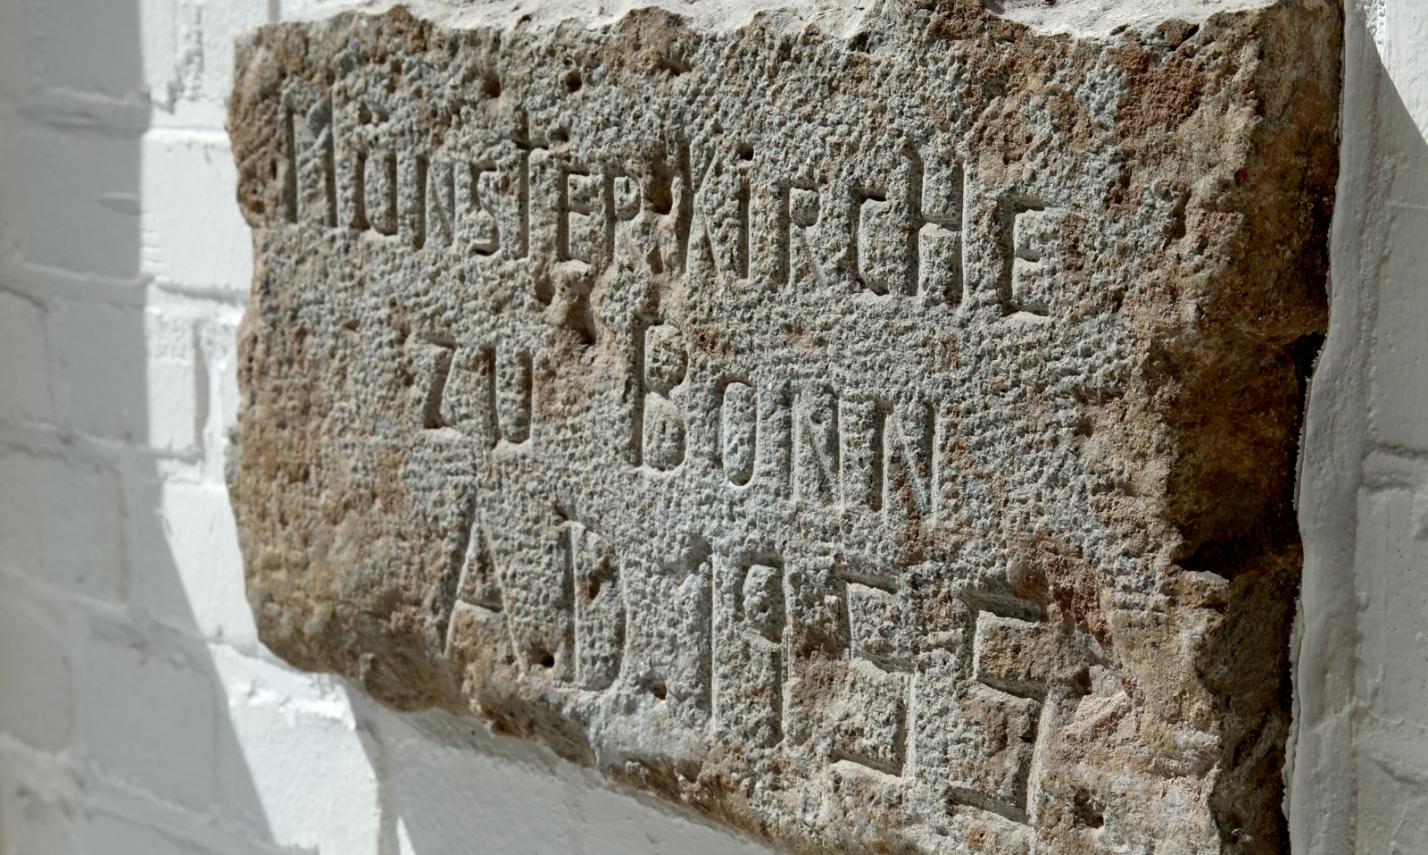 MÜNSTERKIRCHE
ZU BONN
AD.1955